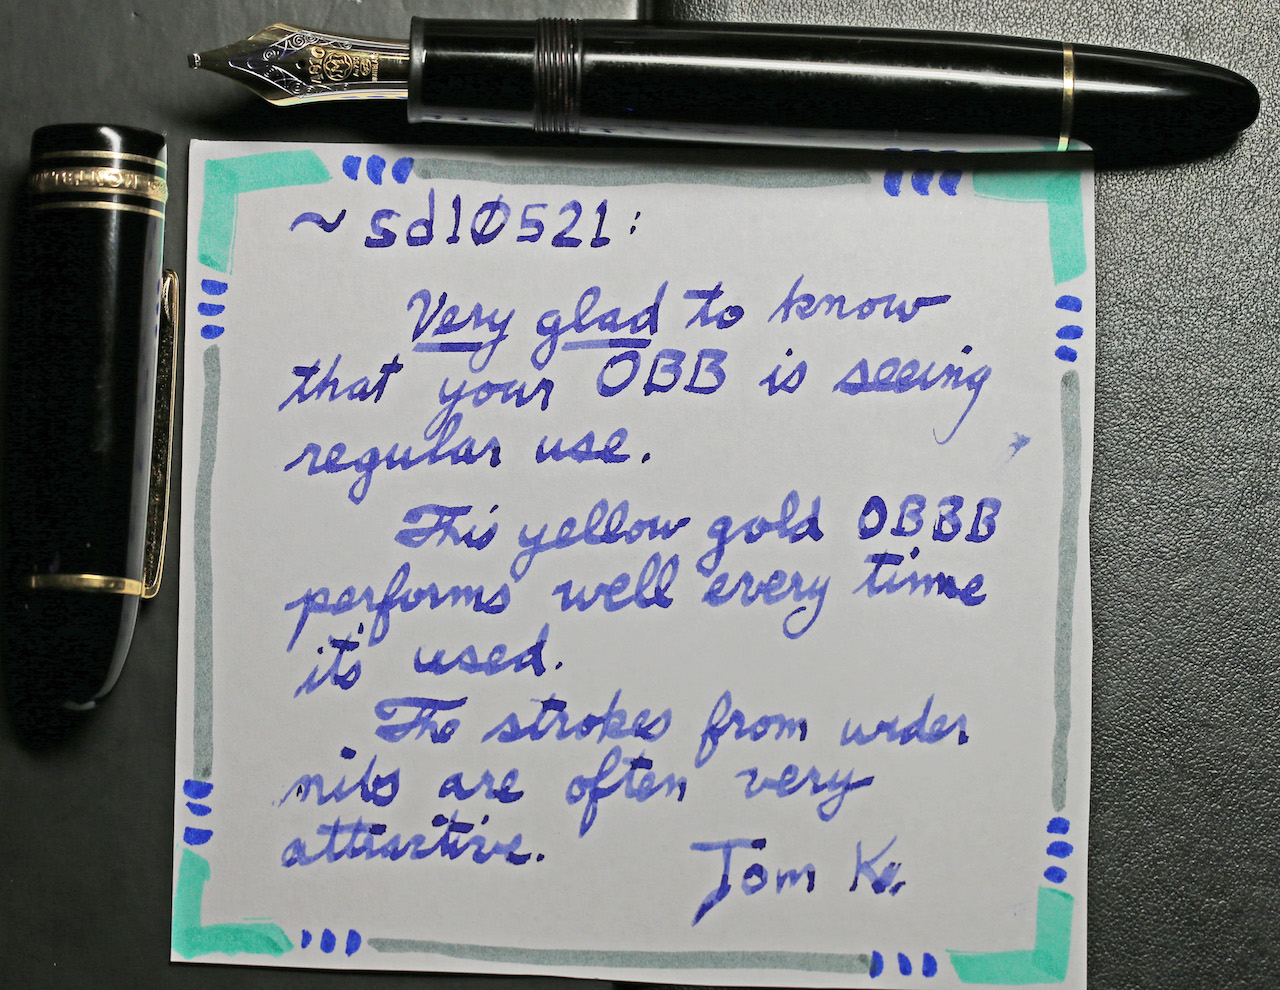 4810
M
~ sd10521:
Very glad to know
that your OBB is seeing
regular use.
This yellow gold OBBB
performs well every time
it's used.
The strokes from wider
nibs are often very
attractive.
Tom K.